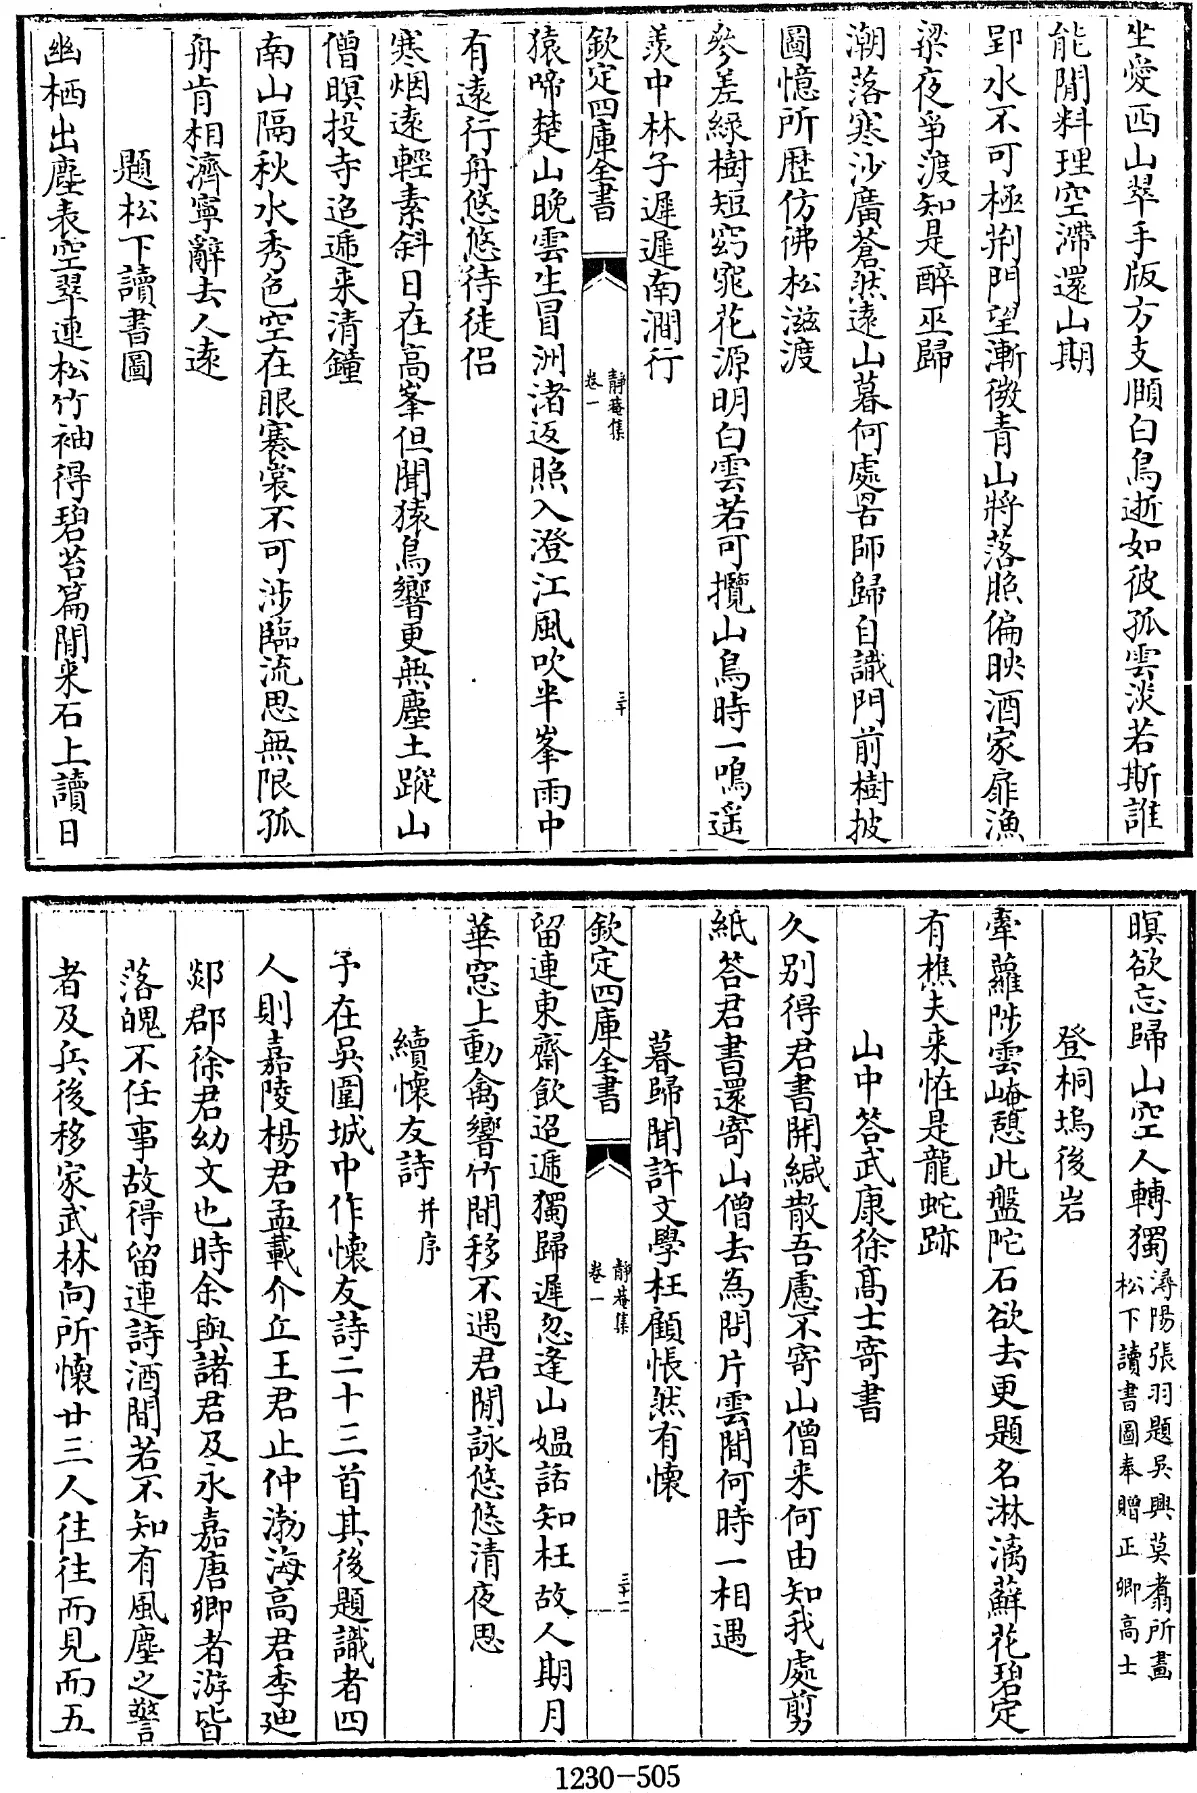 坐愛西山翠手版方支頤白鳥逝如彼孤雲淡若斯誰
能閒料理空滯還山期
郢水不可極荆門望漸微青山將落照偏映酒家扉漁
梁夜爭渡知是醉巫歸
潮落寒沙廣蒼然遠山暮何處罟師歸自識門前樹披
圖憶所歷仿彿松滋渡
參差綠樹短窈窕花源明白雲若可攬山鳥時一鳴遥
羨中林子遲遲南澗行
欽定四庫全書
靜菴集
卷一
三十
猿啼楚山晚雲生冒洲渚返照入澄江風吹半峯雨中
有遠行舟悠悠待徒侣
寒烟遠輕素斜日在高峯但聞猿鳥響更無塵土蹤山
僧暝投寺迢遞来清鐘
南山隔秋水秀色空在眼褰裳不可涉臨流思無限孤
舟肯相濟寧辭去人遠
題松下讀書圖
幽栖出塵表空翠連松竹袖得碧苔篇閒来石上讀日
暝欲忘歸山空人轉獨
潯陽張羽題吳興莫翥所畫
松下讀書圖奉贈正卿高士
登桐塢後岩
牽蘿陟雲崦憩此盤陀石欲去更題名淋漓蘚花碧定
有樵夫来恠是龍蛇跡
山中答武康徐髙士寄書
久别得君書開緘散吾慮不寄山僧来何由知我處剪
紙答君書還寄山僧去為問片雲閒何時一相遇
暮歸聞許文學枉顧悵然有懷
欽定四庫全書
靜菴集
卷一
三十一
留連東齋飲迢遞獨歸遲忽逢山媼話知枉故人期月
華窓上動禽響竹間移不遇君閒詠悠悠清夜思
續懷友詩并序
予在吳圍城中作懷友詩二十三首其後題識者四
人則嘉陵楊君孟載介丘王君止仲渤海高君季廸
郯郡徐君幼文也時余與諸君及永嘉唐卿者游皆
落魄不任事故得留連詩酒間若不知有風塵之警
者及兵後移家武林向所懷廿三人往往而見而五
1230-505